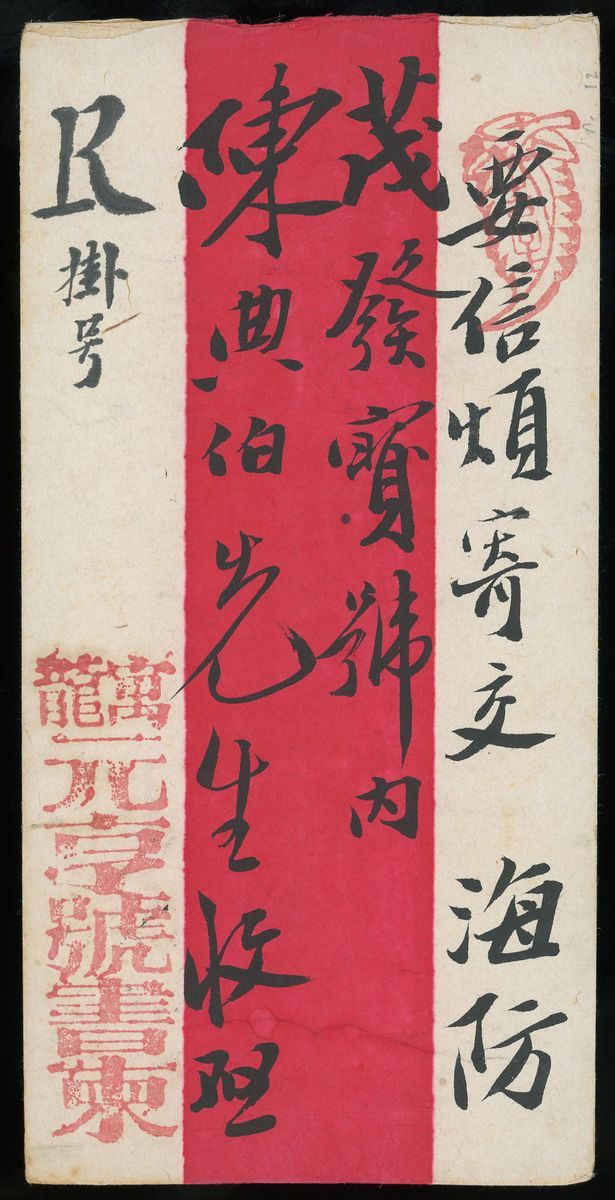 要信煩寄交 海防
茂發寶號內
陳典伯先生收照
R掛号
寓龍
元亨號書柬